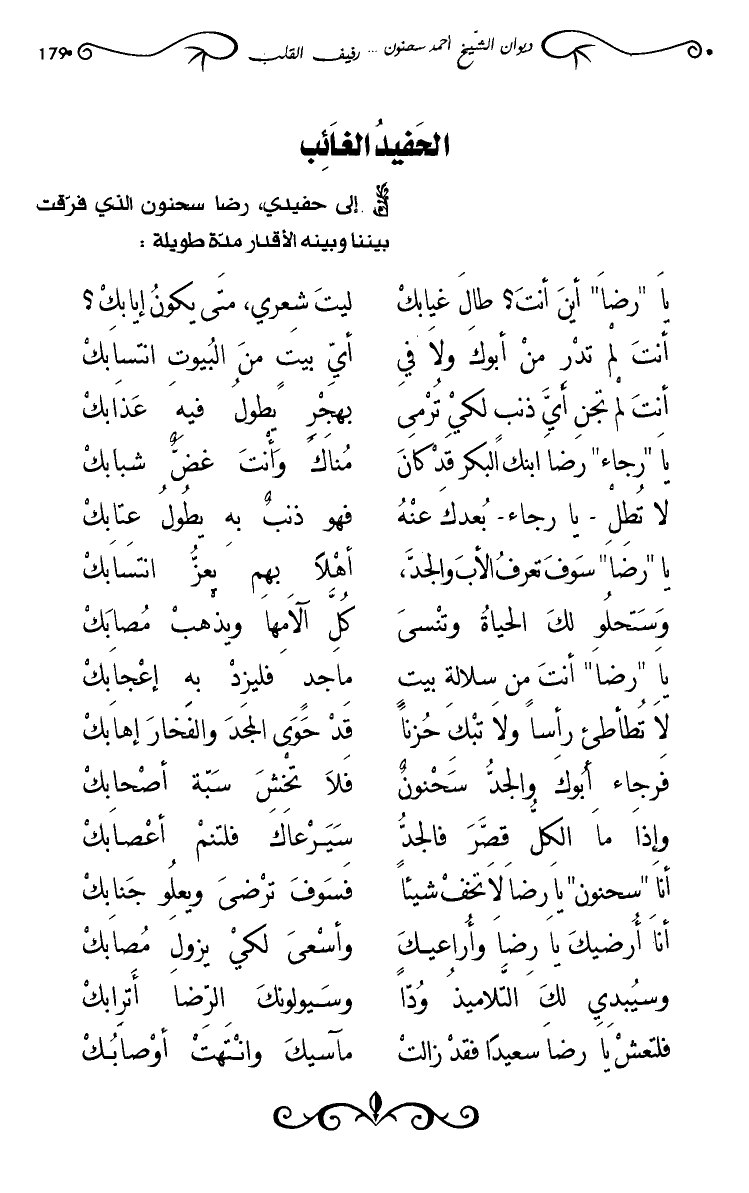 ديوان الشّيخ أحمد سحنون ... رفيف القلب 179
الحَفيدُ الغَائِب
إلى حفيدي، رضا سحنون الذي فرّقت
بيننا وبينه الأقدار مدّة طويلة :
يَا "رضَا" أينَ أنتَ؟ طالَ غيابكْ ليتَ شعري، متَى يكونُ إيابكْ؟
أنتَ لمْ تدْرِ منْ أبوكَ ولَا في أيّ بيتٍ منَ البُيوتِ انتسابكْ
أنتَ لمْ تجنِ أيَّ ذنبٍ لكيْ تُرْمى بهجْرٍ يطولُ فيهِ عَذابكْ
يا "رجاء" رضا ابنك البكر قدْ كانَ مُناكَ وأنتَ غضٌّ شبابكْ
لا تُطلْ - يا رجاء - بُعدكَ عنْهُ فهو ذنبٌ به يطُولُ عتابكْ
يا "رضَا" سَوفَ تعرفُ الأبَ والجدَّ، أهْلاً بهم يعزُّ انتسابكْ
وَسَتحلُو لكَ الحياةُ وتنْسىَ كُلَّ آلَامهَا ويذهبْ مُصابَكْ
يا "رضَا" أنتَ من سلالةِ بيتٍ ماجدٍ فليزدْ بهِ إعْجابكْ
لَا تُطأطئ رأساً ولَا تبْك حُزناً قدْ حَوَى المجدَ والفَخارَ إهابكْ
فَرجاء أبُوكَ والجدُّ سَحْنونٌ فلاَ تخْشَ سَبّةَ أصْحابكْ
وإذَا مَا الكلُّ قصَّرَ فالجدُّ سَيَرْعاكَ فلتنمْ أعْصابكْ
أنَا "سحنون" يا رضَا لَا تخفْ شيئاً فسَوفَ ترْضىَ ويعلُو جنَابكْ
أنَا أُرضيكَ يا رضَا وأُراعيكَ وأسْعىَ لكيْ يزولَ مُصابكْ
وسيُبدي لكَ التّلاميذُ وُدّاً وسَيولونكَ الرّضَا أترابكْ
فلتعشْ يا رضا سعيدًا فقدْ زالتْ مآسيكَ وانْتهتْ أوْصابُكْ